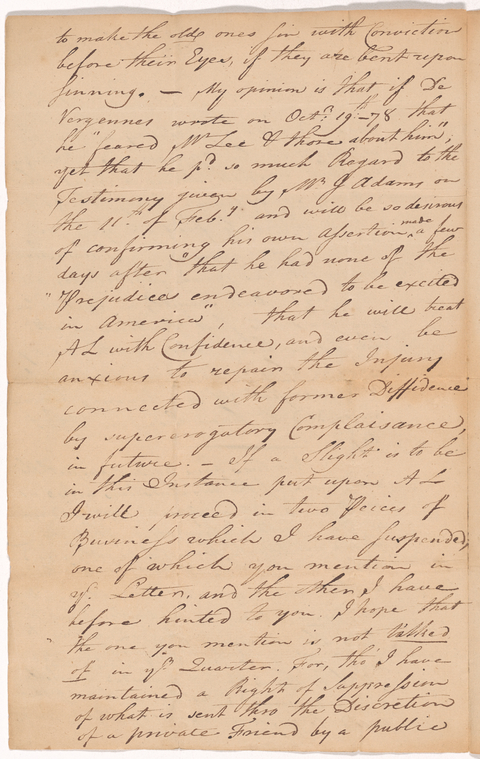 to make the old ones sin with Conviction
before their Eyes, if they are bent upon
sinning. — My opinion is that if De
Vergennes wrote on Octr. 19th -78 that
he "feared Mr Lee & those about him",
yet that he pd. so much Regard to the
Testimony given by Mr J Adams on
the 11th. of Feby. and will be so desirous
of confirming his own assertion made a few
days after "that he had none of the
"Prejudices endeavored to be excited
in America", that he will treat
AL with Confidence, and even be
anxious to repair the Injury
connected with former Diffidence
by supererogatory Complaisance,
in future. — If a Slight is to be
in this Instance put upon AL
I will proceed in two Peices of
Business which I have suspended,
one of which you mention in
yr. Letter, and the other I have
before hinted to you. I hope that
the one you mention is not talked
of in yr. Quarter. For, tho I have
maintained a Right of Suppression
of what is sent thro the Discretion
of a private Friend by a public